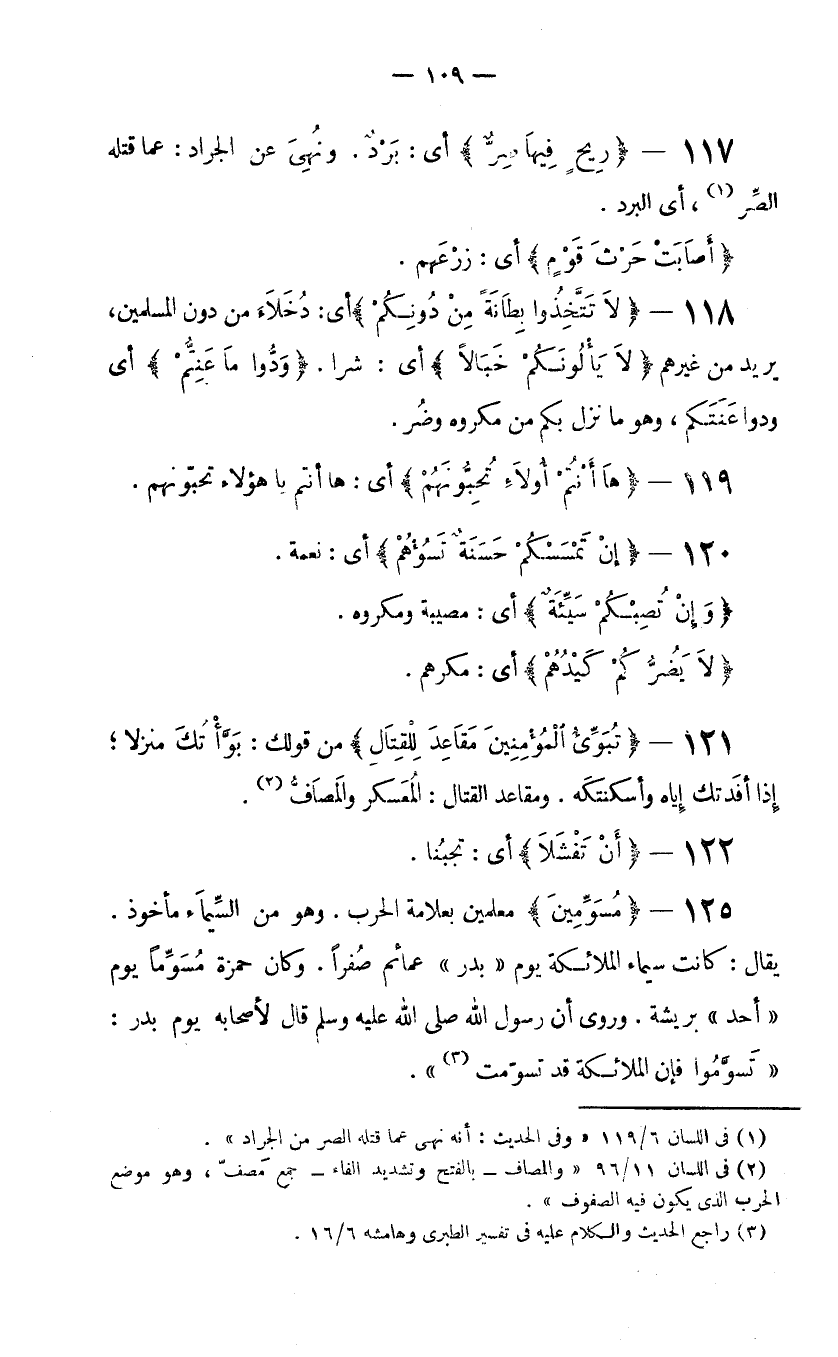 — ١٠٩ —
١١٧ — ﴿ رِيحٍ فِيهَا صِرٌّ ﴾ أى : بَرْدٌ . ونُهِىَ عن الجراد : عما قتله
الصِّر (١) ، أى البرد .
﴿ أَصَابَتْ حَرْثَ قَوْمٍ ﴾ أى : زرْعَهم .
١١٨ — ﴿ لاَ تَتَّخِذُوا بِطَانَةً مِنْ دُونِكُمْ ﴾ أى: دُخَلاَءَ من دون المسلمين،
يريد من غيرهم ﴿ لاَ يَأْلُونَكُمْ خَبَالاً ﴾ أى : شرا . ﴿ وَدُّوا مَا عَنِتُّمْ ﴾ أى
ودوا عَنَتَكم ، وهو ما نزل بكم من مكروه وضُر .
١١٩ — ﴿ هَا أَنْتُمْ أُولاَءِ تُحِبُّونَهُمْ ﴾ أى : ها أنتم يا هؤلاء تحبّونهم .
١٢٠ — ﴿ إِنْ تَمْسَسْكُمْ حَسَنَةٌ تَسُؤْهُمْ ﴾ أى : نعمة .
﴿ وَإِنْ تُصِبْكُمْ سَيِّئَةٌ ﴾ أى : مصيبة ومكروه .
﴿ لاَ يَضُرُّكُمْ كَيْدُهُمْ ﴾ أى : مكرهم .
١٢١ — ﴿ تُبَوِّئُ ٱلْمُؤْمِنِينَ مَقَاعِدَ لِلْقِتَالِ ﴾ من قولك : بَوَّأْتُكَ منزلا ؛
إِذا أفَدتك إِياه وأسكنتكَه . ومقاعد القتال : المُعَسكر والمَصافُّ (٢) .
١٢٢ — ﴿ أَنْ تَفْشَلاَ ﴾ أى : تجبُنا .
١٢٥ — ﴿ مُسَوِّمِينَ ﴾ معلمين بعلامة الحرب . وهو من السِّيماَء مأخوذ .
يقال : كانت سيماء الملائكة يوم « بدر » عمائم صُفراً . وكان حمزة مُسَوِّماً يوم
« أحد » بريشة . وروى أن رسول الله صلى الله عليه وسلم قال لأصحابه يوم بدر :
« تَسوَّمُوا فإن الملائكة قد تسوّمت (٣) » .
(١) فى اللسان ١١٩/٦ « وفى الحديث : أنه نهى عما قتله الصر من الجراد » .
(٢) فى اللسان ٩٦/١١ « والمصاف — بالفتح وتشديد الفاء — جمع مَصفّ ، وهو موضع
الحرب الذى يكون فيه الصفوف » .
(٣) راجع الحديث والكلام عليه فى تفسير الطبرى وهامشه ١٦/٦ .